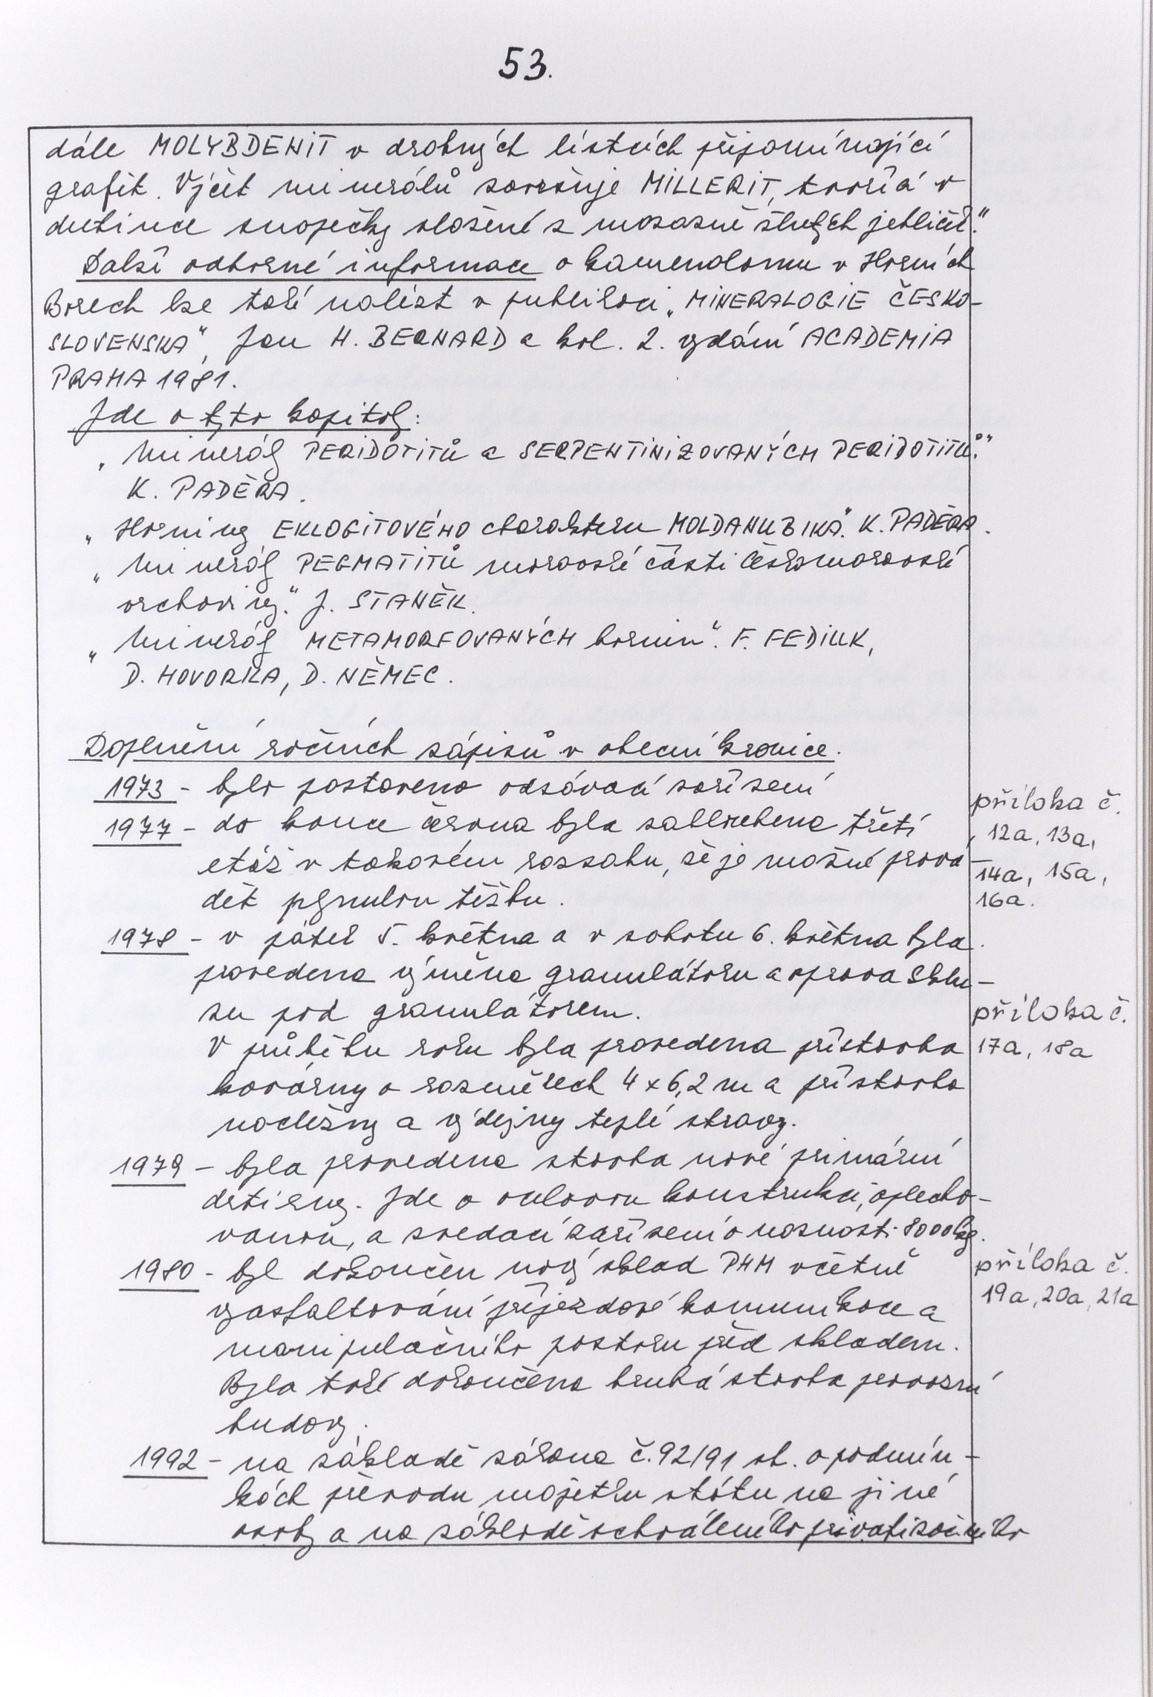 53.
dále MOLYBDENIT v drobných lístcích připomínající
grafit. Výčet minerálů završuje MILLERIT, tvoří v
dutince snopečky složené z mosazně žlutých jehliček."
Další odborné informace o kamenolomu v Horních
Borech lze také nalézt v publikaci „MINERALOGIE ČESKO-
SLOVENSKA", Jan H. BERNARD a kol. 2. vydání ACADEMIA
PRAHA 1981.
Jde o tyto kapitoly:
„Minerály PERIDOTITŮ a SERPENTINIZOVANÝCH PERIDOTITŮ."
K. PADĚRA.
„Horniny EKLOGITOVÉHO charakteru MOLDANUBIKA". K. PADĚRA.
„Minerály PEGMATITŮ moravské části českomoravské
vrchoviny". J. STANĚK.
„Minerály METAMORFOVANÝCH hornin". F. FEDIUK,
D. HOVORKA, D. NĚMEC.
Doplnění ročních zápisů v obecní kronice.
1973 - bylo postaveno odsávací zařízení
1977 - do konce června byla zahloubena třetí
etáž v takovém rozsahu, že je možné prová-
dět plynulou těžbu.
příloha č.
12a, 13a,
14a, 15a,
16a.
1978 - v pátek 5. května a v sobotu 6. května byla
provedena výměna granulátoru a oprava sklu-
zu pod granulátorem.
V průběhu roku byla provedena přístavba
kovárny o rozměrech 4 x 6,2 m a přístavba
nocležny a výdejny teplé stravy.
příloha č.
17a, 18a
1979 - byla provedena stavba nové primární
drtírny. Jde o ocelovou konstrukci, oplecho-
vanou, a zvedací zařízení o nosnosti 8000 kg.
1980 - byl dokončen nový sklad PHM včetně
vyasfaltování příjezdové komunikace a
manipulačního postoru před skladem.
Byla také dokončena hrubá stavba provozní
budovy.
příloha č.
19a, 20a, 21a
1992 - na základě zákona č. 92/91 sb. o podmín-
kách převodu majetku státu na jiné
osoby a na základě schváleného privatizačního